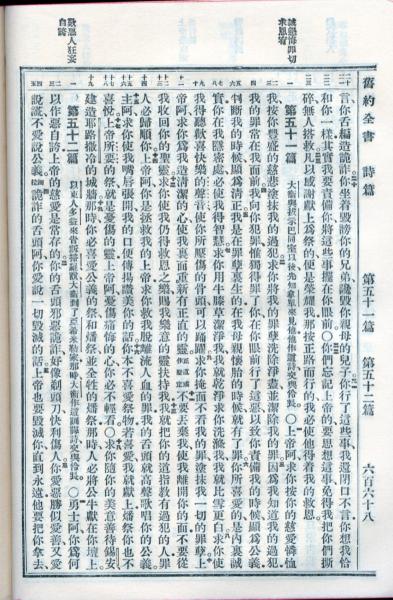 舊約全書 詩篇 第五十一篇 第五十二篇 六百六十八
言你舌編造詭詐你坐着毀謗你的兄弟讒毀你親母的兒子你行了這些事我還閉口不言你想我恰
和你一樣其實我要責備你將這些事擺在你眼前○你們忘記上帝的要思想這事免得我把你們撕
碎無人搭救凡以感謝獻上爲祭的便是榮耀我那按正路而行的我必使他得着我的救恩
求恩宥
第五十一篇 大衛與拔示巴同室以後先知拿單來見他他作這詩交與伶長○上帝阿求你按你的慈愛憐恤
我按你豐盛的慈悲塗抹我的過犯求你將我的罪孽洗除淨盡並潔除我的罪因爲我知道我的過犯
我的罪常在我面前我向你犯罪惟獨得罪了你在你眼前行了這惡以致你責備我的時候顯爲公義
判斷我的時候顯爲淸正我是在罪孽裏生的在我母親懷胎的時候就有了罪你所喜愛的是內裏誠
實你在我隱密處必使我得智慧求你用牛膝草潔淨我我就乾淨求你洗滌我我就比雪更白求你使
我得聽歡喜快樂的聲音使你所壓傷的骨頭可以踴躍求你掩面不看我的罪塗抹我一切的罪孽上
帝阿求你爲我造淸潔的心使我裏面重新有正直的靈不要丟棄我使我離開你的面不要從
我收回你的聖靈求你使我仍得救恩之樂賜我樂意的靈扶持我我就把你的道指教有過犯的人罪
人必歸順你上帝阿你是拯救我的上帝求你救我脫離流人血的罪我的舌頭就高聲歌唱你的公義
主阿求你使我嘴唇張開我的口便傳揚讚美你的話你本不喜愛祭物若喜愛我就獻上燔祭你也不
喜悅上帝所要的祭就是憂傷的靈上帝阿憂傷痛悔的心你必不輕看○求你隨你的美意善待錫安
建造耶路撒冷的城牆那時你必喜愛公義的祭和燔祭並全牲的燔祭那時人必將公牛獻在你壇上
歎惡人狂妄
自誇
第五十二篇 以東人多益來告訴掃羅說大衛到了亞希米勒家那時大衛作這訓誨詩交與伶長○勇士阿你爲何
以作惡自誇上帝的慈愛是常存的你的舌頭邪惡詭詐好像剃頭刀快利傷人你愛惡勝似愛善又愛
說謊不愛說公義細拉詭詐的舌頭阿你愛說一切毀滅的話上帝也要毀滅你直到永遠他要把你拿去